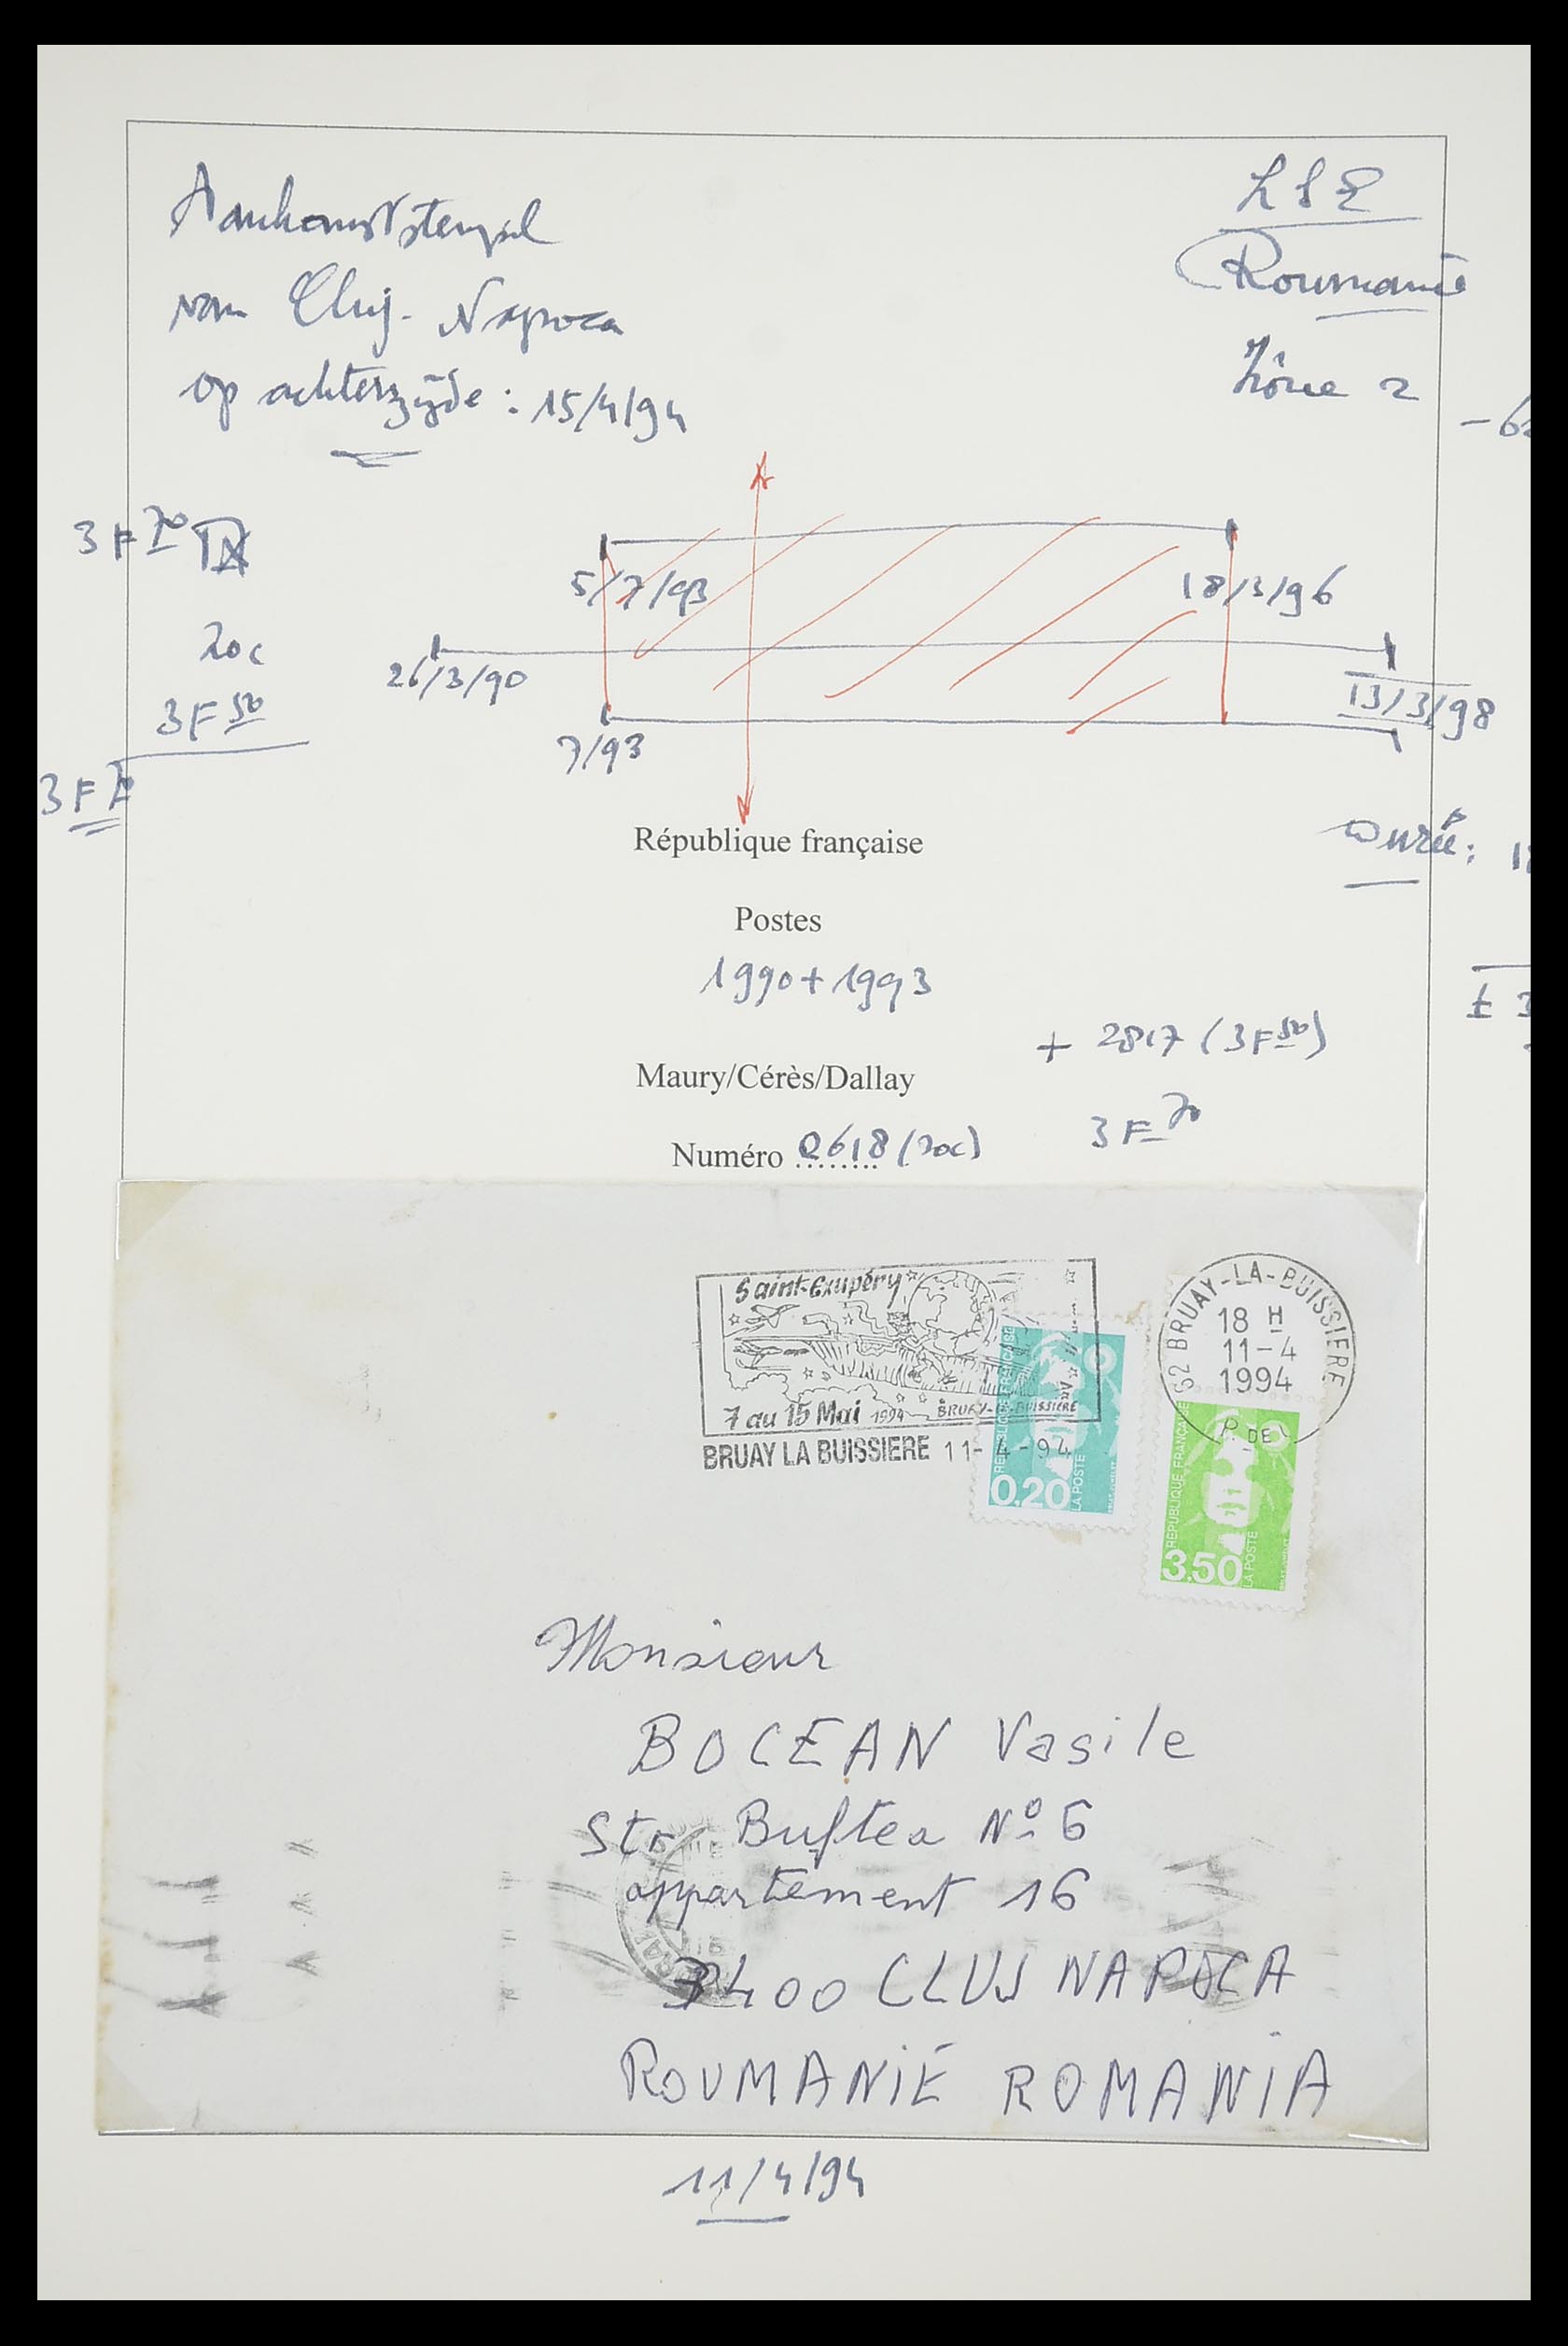 Aankomststempel
van Cluj-Napoca
op achterzijde : 15/4/94
LSE
Roumanie
Zône 2
3F70
20c
3F50
5/7/93
18/3/96
26/3/90
13/3/98
7/93
3F
République française
Durée:
Postes
1990+1993
+ 2817 (3F50)
Maury/Cérès/Dallay
3F70
Numéro 2618 (20c)
Saint-Exupéry
7 au 15 Mai 1994 BRUAY-LA-BUISSIERE
BRUAY LA BUISSIERE 11-4-94
62 BRUAY-LA-BUISSIERE
18 H
11-4
1994
P. DE
RÉPUBLIQUE FRANÇAISE
0,20
LA POSTE
RÉPUBLIQUE FRANÇAISE
3,50
LA POSTE
Monsieur
BOCEAN Vasile
Str. Buftea Nº 6
appartement 16
3400 CLUJ NAPOCA
ROUMANIE ROMANIA
11/4/94